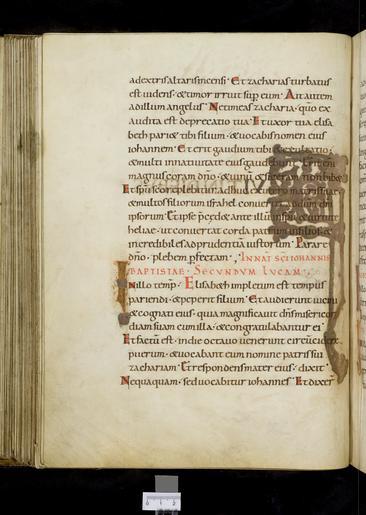 adextrisaltarisincensi· Et zacharias turbatus
est uidens· & timor irruit sup eum· Ait autem
ad illum angelus· Ne timeas zacharia· quo ex
audita est deprecatio tua· Et uxor tua elisa
beth pari& tibi filium· & uocabis nomen eius
iohannem· Et erit gaudium tibi & exultatio·
& multi in natiuitate eius gaudebunt·
magnus coram dno· & uinu & sicera non bibe
& multos filiorum israhel conuert
ipsorum· Et ipse
heliae· ut conuertat corda patrum
incredibiles ad prudentiam iustorum· Parare
dno· plebem pfectam· In nat sci iohannis
baptistae· Secundum Lucam·
In illo temp· Elisabeth impletum est tempus
pariendi· & peperit filium· Et audierunt uicini
& cognati eius· quia magnificauit dns miseric
diam suam cum illa· & congratulabantur ei·
Et factu est· in die octauo uenerunt circucidere
puerum· & uocabant eum nomine patris sui
zachariam· Et respondens mater eius· dixit·
Nequaquam· sed uocabitur iohannes· Et dixer